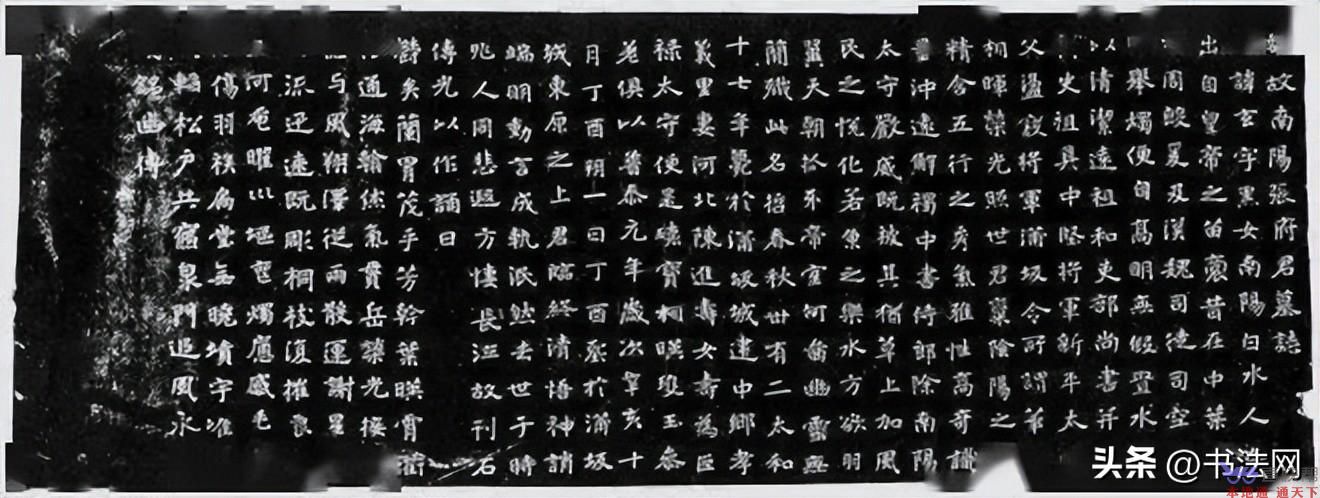 故南陽張府君墓誌
諱玄字黑女南陽白水人
出自皇帝之苗裔昔在中葉
周殷爰及漢魏司徒司空
舉燭便自高明無假置水
以清潔遠祖和吏部尚書并
史祖具中堅將軍新平太
父盪寇將軍蒲坂令所謂華
相暉榮光照世君稟陰陽之
精含五行之秀氣雅性高奇識
量沖遠解褐中書侍郎除南陽
太守嚴威既被其猶草上加風
民之悅化若魚之樂水方欲羽
翼天朝抓牙帝室何啚幽靈無
簡殲此名哲春秋卅有二太和
十七年薨於蒲坂城建中鄉孝
義里妻河北陳進壽女壽為巨
祿太守便是瓌寶相暎瓊玉參
差俱以普泰元年歲次辛亥十
月丁酉朔一日丁酉葬於蒲坂
城東原之上君臨終清悟神誚
端明動言成軌泯然去世于時
兆人同悲遐方悽長泣故刊石
傳光以作誦曰
欝矣蘭胄茂乎芳幹葉暎霄衢
通海翰休氣貫岳榮光接
与風翔澤從雨散運謝星
流迅速既彫桐枝復摧良
河奄曜川堙巠燭痛感毛
傷羽族扃堂無曉墳宇唯
輴松戶共寢泉門追風永
銘幽傳
头条 @书法网
本地通 通天下